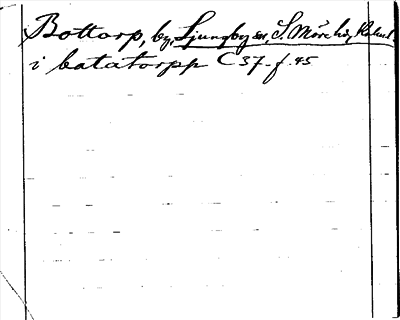 Bottorp, by, Ljungby sn, S. Möre hd, Kalmar l.
i batatorpp C 37 f. 45